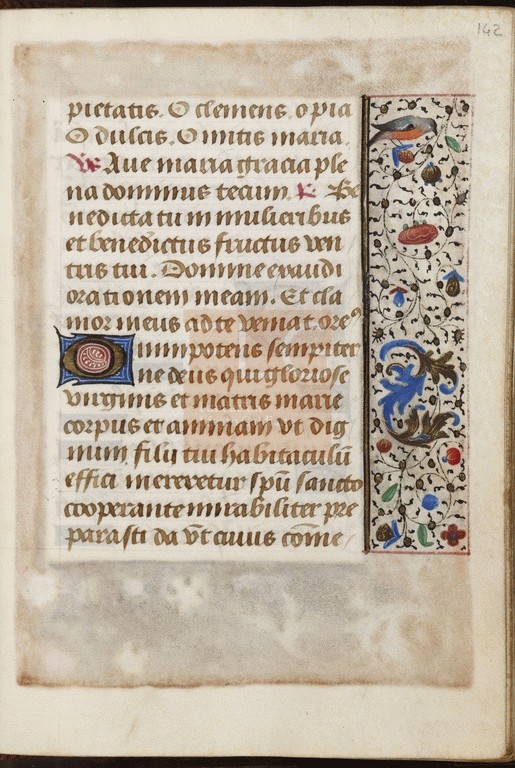 142
pietatis. O clemens. o pia
O dulcis. O mitis maria.
V. Aue maria gracia ple
na dominus tecum. R. Be
nedicta tu in mulieribus
et benedictus fructus ven
tris tui. Domine exaudi
orationem meam. Et cla
mor meus ad te veniat. ore9
Omnipotens sempiter
ne deus qui gloriose
virginis et matris marie
corpus et animam vt dig
num filii tui habitaculū
effici mereretur spū sancto
cooperante mirabiliter pre
parasti da vt cuius cōme